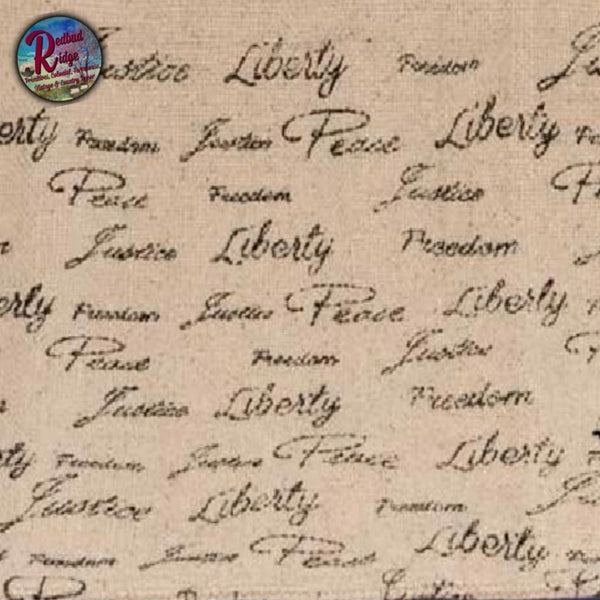 Redbud
Ridge
Primitives, Colonial, Farmhouse
Vintage & Country Decor
Justice Liberty Freedom
erty Freedom Justice Peace Liberty
Peace Freedom Justice
Justice Liberty Freedom
erly Freedom Justice Peace Liberty
Peace Freedom Justice
Justice Liberty Freedom
ty Freedom Justice Peace Liberty
Justice Liberty Freedom
Freedom Justice Peace Liberty